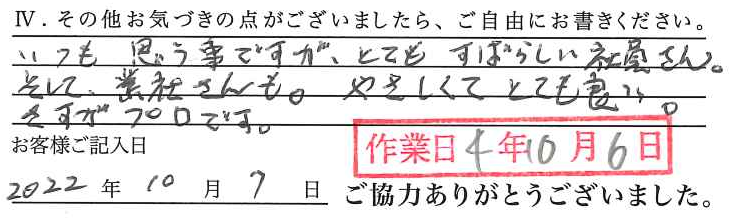 Ⅳ．その他お気づきの点がございましたら、ご自由にお書きください。
いつも 思う事ですが、とても すばらしい 社員さん。
そして、業社さんも。 やさしくて とても良い。
さすが プロです。
お客様ご記入日
作業日 4年10月6日
2022 年 10 月 7 日 ご協力ありがとうございました。